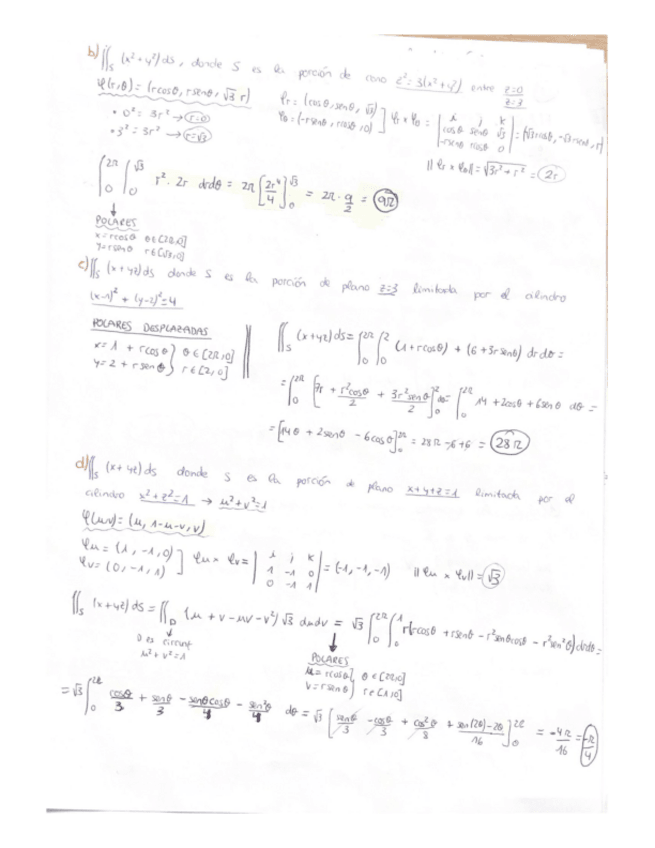 b) ∬s (x²+y²) ds, donde S es la porción de cono z²=3(x²+y²) entre z=0 z=3
φ(r,θ) = (rcosθ, rsenθ, √3 r)
• 0² = 3r² → r=0
• 3² = 3r² → r=√3
φr = (cosθ, senθ, √3)
φθ = (-rsenθ, rcosθ, 0) ] φr × φθ = | i j k | cosθ senθ √3 | -rsenθ rcosθ 0 | = (-√3rcosθ, -√3rsenθ, r)
|| φr × φθ || = √3r²+r² = 2r
∫₀^2π ∫₀^√3 r² · 2r drdθ = 2π [2r⁴/4]₀^√3 = 2π · 9/2 = 9π
POLARES
x=rcosθ θ∈[2π,0]
y=rsenθ r∈[√3,0]
c) ∬s (x+yz) ds donde S es la porción de plano z=3 limitada por el cilindro
(x-1)² + (y-2)² = 4
POLARES DESPLAZADAS
x = 1 + rcosθ } θ∈[2π,0]
y = 2 + rsenθ } r∈[2,0]
∬s (x+yz) ds = ∫₀^2π ∫₀^2 (1+rcosθ) + (6+3rsenθ) drdθ =
= ∫₀^2π [7r + r²cosθ/2 + 3r²senθ/2]₀² dθ = ∫₀^2π 14 + 2cosθ + 6senθ dθ =
= [14θ + 2senθ - 6cosθ]₀^2π = 28π -6+6 = 28π
d) ∬s (x+yz) ds donde S es la porción de plano x+y+z=1 limitada por el
cilindro x²+z²=1 → u²+v²=1
φ(u,v) = (u, 1-u-v, v)
φu = (1, -1, 0)
φv = (0, -1, 1) ] φu × φv = | i j k | 1 -1 0 | 0 -1 1 | = (-1, -1, -1) || φu × φv || = √3
∬s (x+yz) ds = ∬D (u + v - uv - v²) √3 dudv = √3 ∫₀^2π ∫₀^1 r(rcosθ + rsenθ - r²senθcosθ - r²sen²θ) drdθ =
D es circunf
u²+v²=1
POLARES
u = rcosθ } θ∈[2π,0]
v = rsenθ } r∈[1,0]
= √3 ∫₀^2π cosθ/3 + senθ/3 - senθcosθ/4 - sen²θ/4 dθ = √3 [senθ/3 - cosθ/3 + cos²θ/8 + sen(2θ)-2θ/16]₀^2π = -4π/16 = -π/4